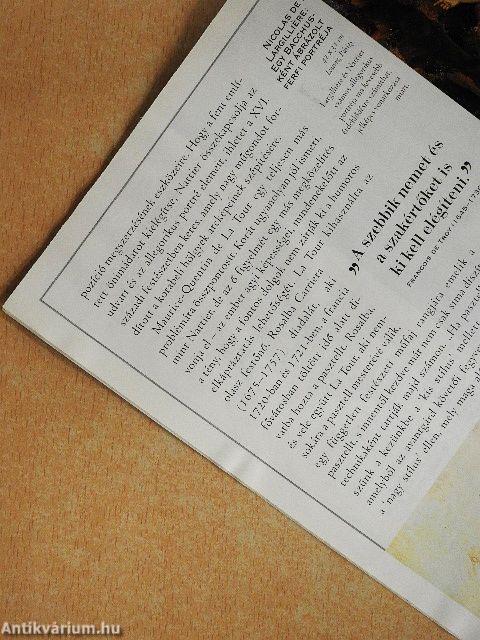 pozíció megszerzésének eszközeire. Hogy a fent emlí-
tett önimádatot kielégítse, Nattier összekapcsolja az
utkán és az allegorikus portré elemeit, ihletet a XVI.
századi festészetben keres, amely nagy műgondot for-
dított a korabeli hölgyek arcképeinek szépítésére.
Maurice-Quentin de La Tour egy teljesen más
problémára összpontosít. Korát ugyanolyan jól ismeri,
mint Nattier, de az ő figyelmét egy más megközelítés
vonja el – az ember agyi képességei, mindenekelőtt az
a tény, hogy a fontos dolgok nem zárják ki a humoros
elkápráztatás lehetőségét. La Tour kihasználta az
olasz festőnő, Rosalba Carriera
(1675–1757) haladát, aki
1720-ban és 1721-ban, a francia
fővárosban töltött idő alatt di-
vatba hozta a pasztellt. Rosalba,
és vele együtt La Tour, aki nem-
sokára a pasztell mesterévé válik,
egy független festészeti műfaj rangjára emelik a
pasztellt, s innentől kezdve már nem csak sima
technikaként tartják majd számon. „Ha pasztell
szűnk a kezünkbe a 'kis stílus' mellett
amelyből az avantgárd követői
a 'nagy stílus' ellen, mely maga
NICOLAS DE
LARGILLIÈRE:
EGY BACCHUS-
KÉNT ÁBRÁZOLT
FÉRFI PORTRÉJA
Louvre, Párizs
Largillière és Nattier
számos allegorikus
portréja
„A szebbik nemet és
a szakértőket is
ki kell elégíteni.”
FRANÇOIS DE TROY (1645–1730)
Antikvárium.hu